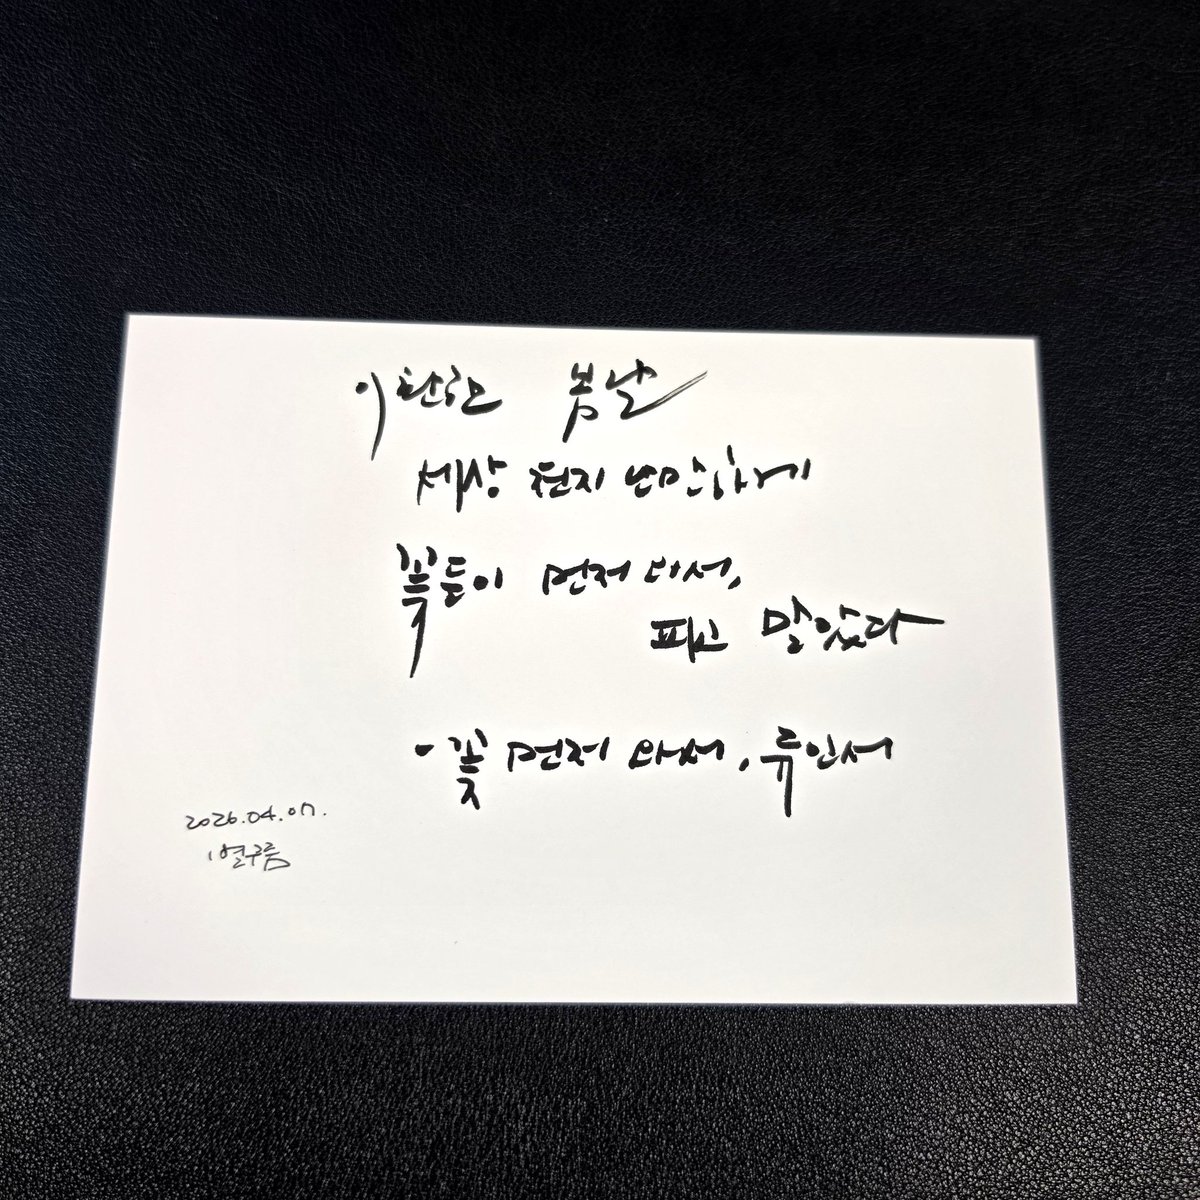 이 환한 봄날
세상 천지 난만하게
꽃들이 먼저 와서,
피고 말았다
- 꽃 먼저 와서, 류인서
2026.04.07.
별구름